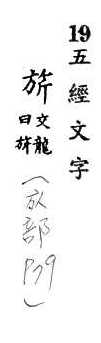 19五經文字
旂文龍曰旂（㫃部P79）